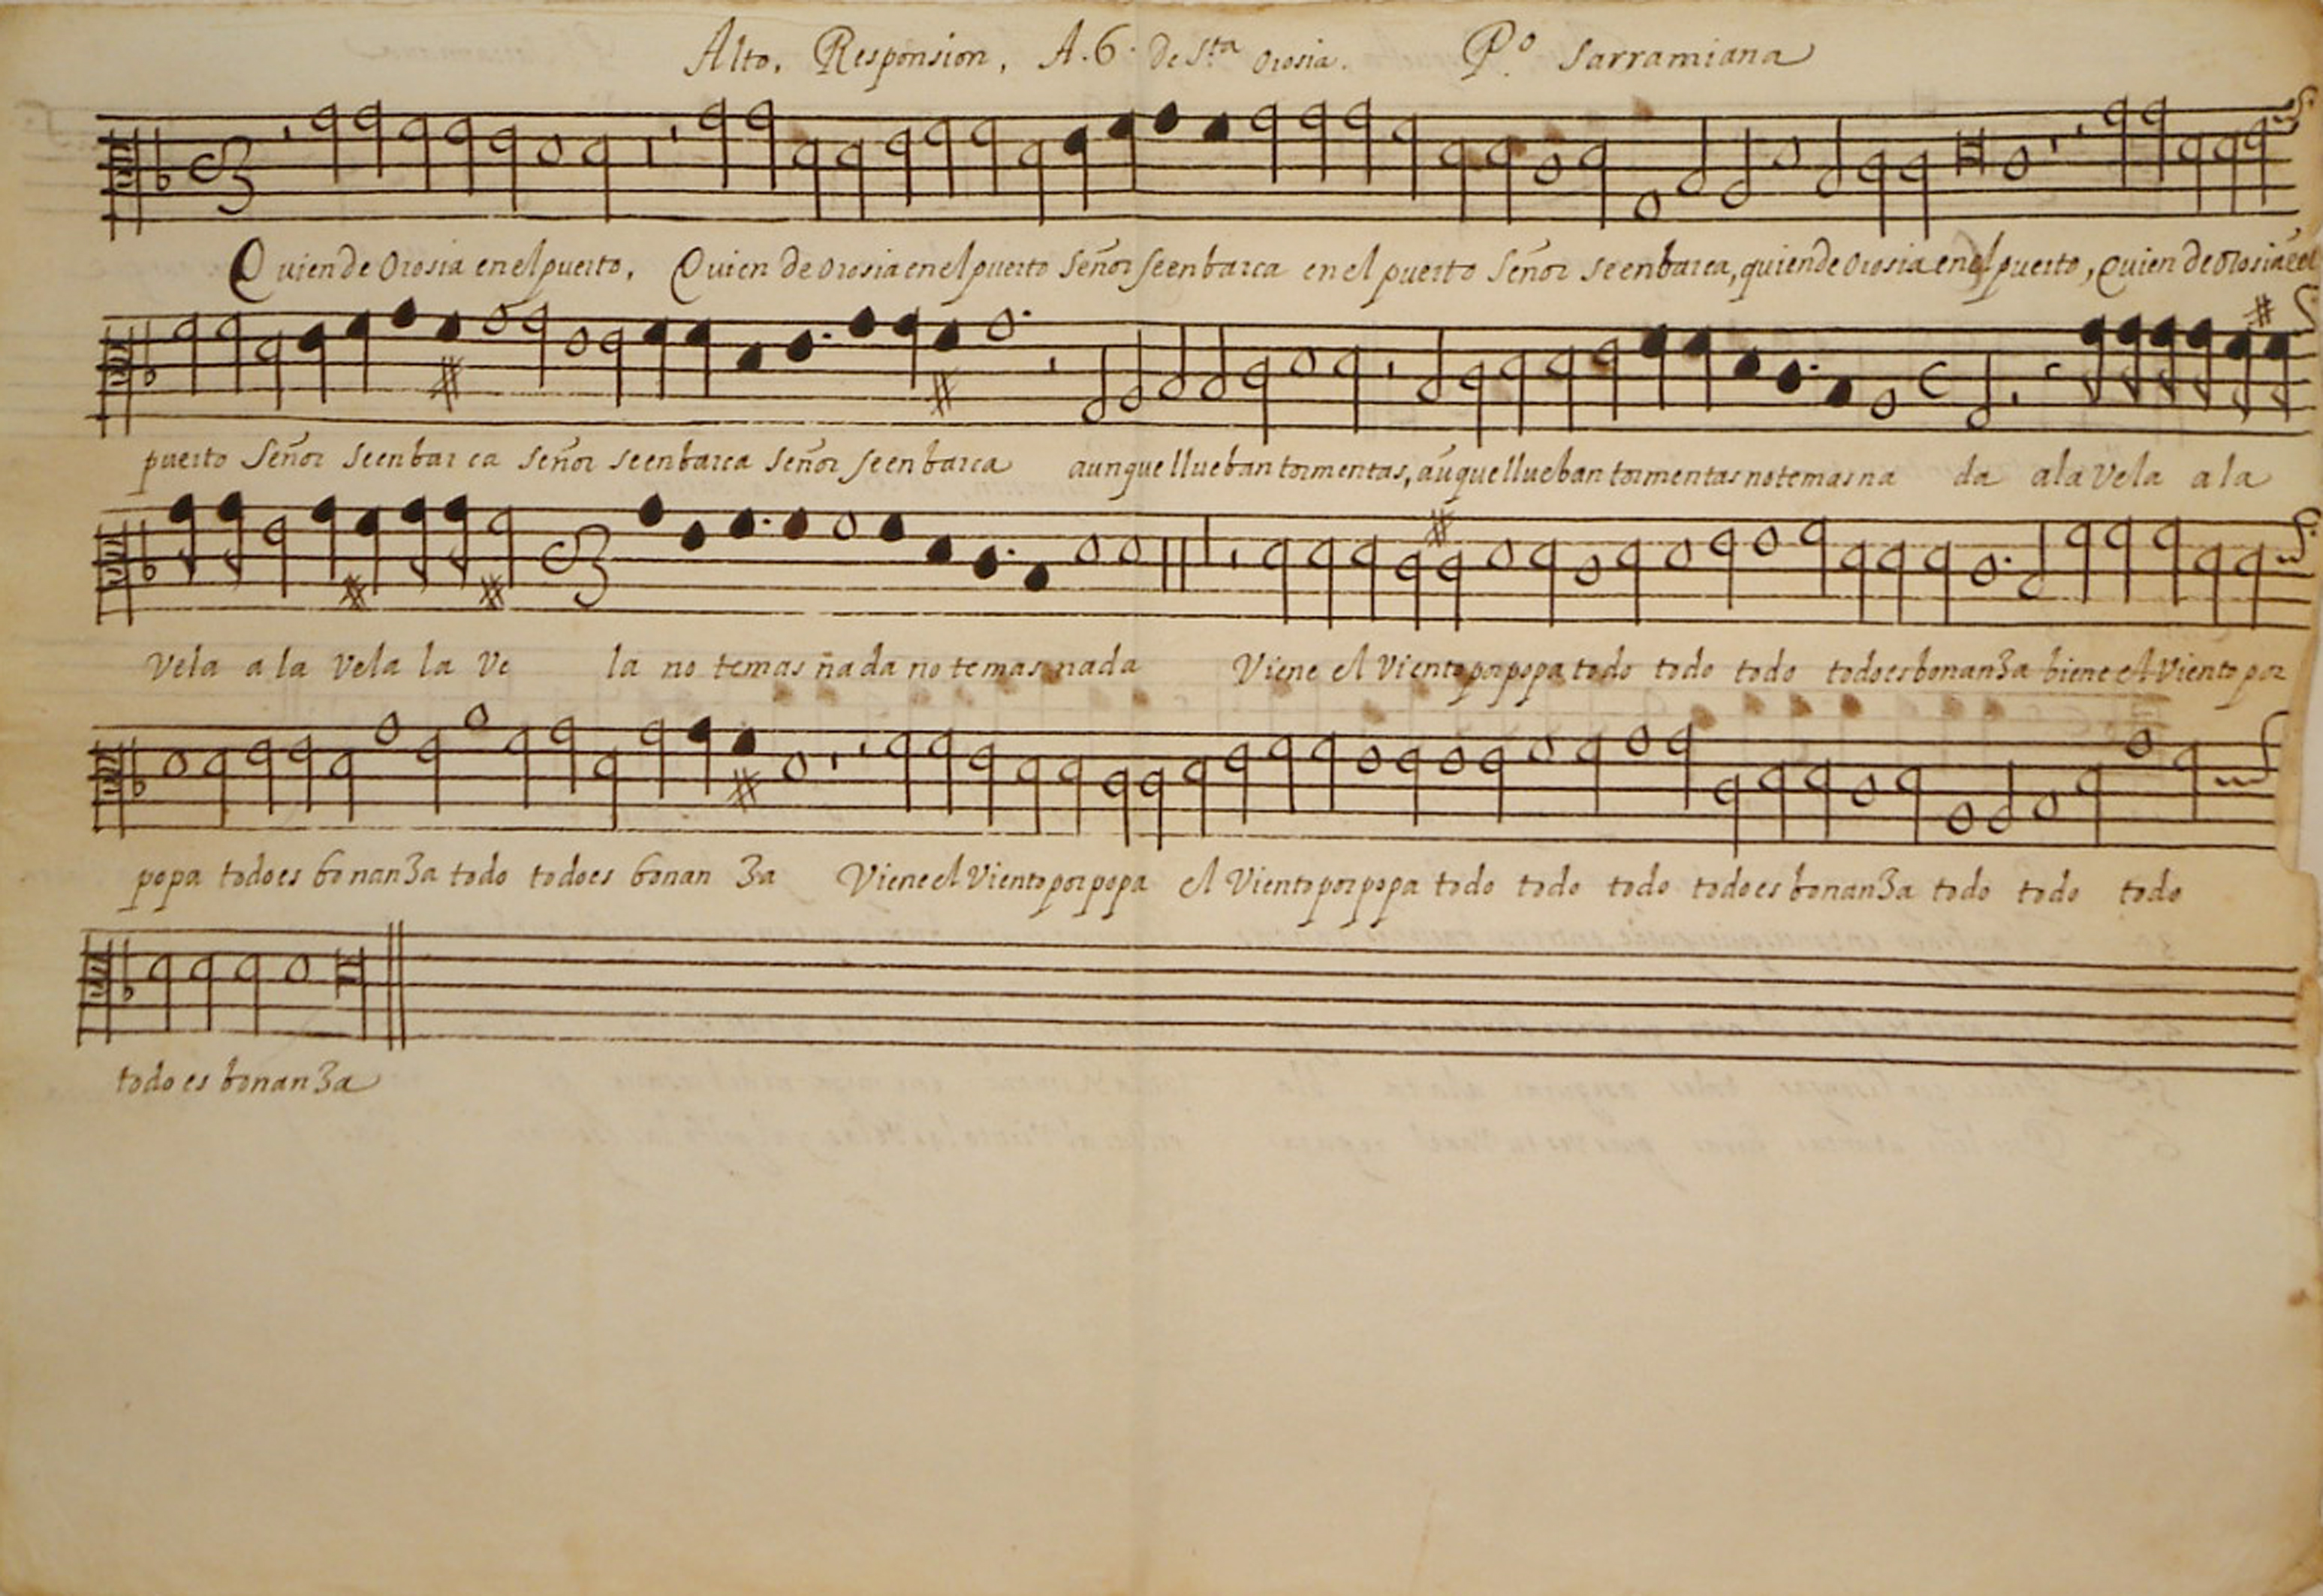 Alto. Responsion, A.6. De S.ta Orosia. P.o Sarramiana
Quien de Orosia en el puerto, Quien de Orosia en el puerto Señor se enbarca en el puerto Señor se enbarca, quien de Orosia en el puerto, quien de Orosia
puerto Señor se enbarca Señor se enbarca Señor se enbarca aunque llueban tormentas, aúque llueban tormentas no temas na da a la Vela a la
Vela a la Vela la Ve la no temas nada no temas nada Viene el Viento por popa todo todo todo todo es bonanza biene el Viento por
popa todo es bonanza todo todo es bonan za Viene el Viento por popa el Viento por popa todo todo todo todo es bonanza todo todo todo
todo es bonanza